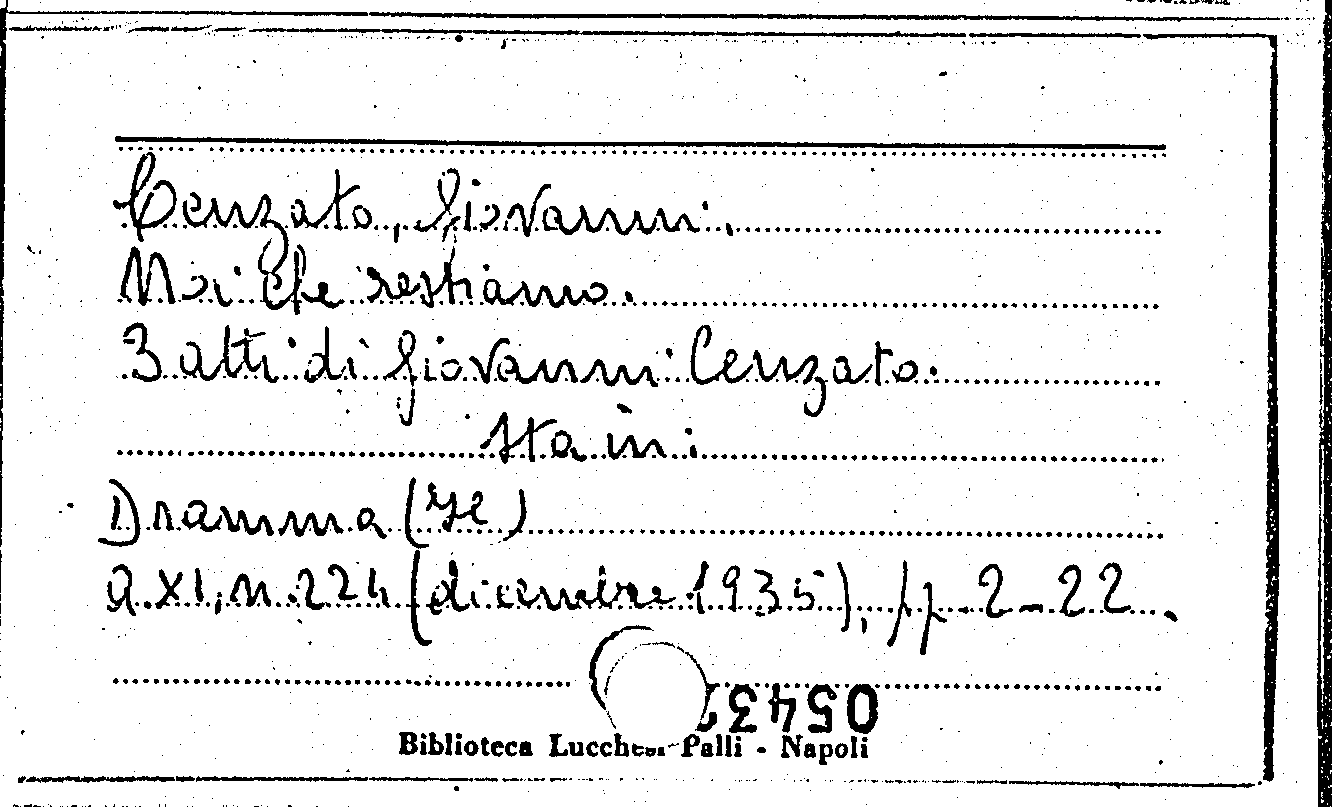 Cenzato, Giovanni.
Noi che restiamo.
3 atti di Giovanni Cenzato.
Sta in:
Dramma (Il)
a. XI, n. 224 (dicembre 1935), pp. 2-22.
Biblioteca Lucchesi Palli - Napoli